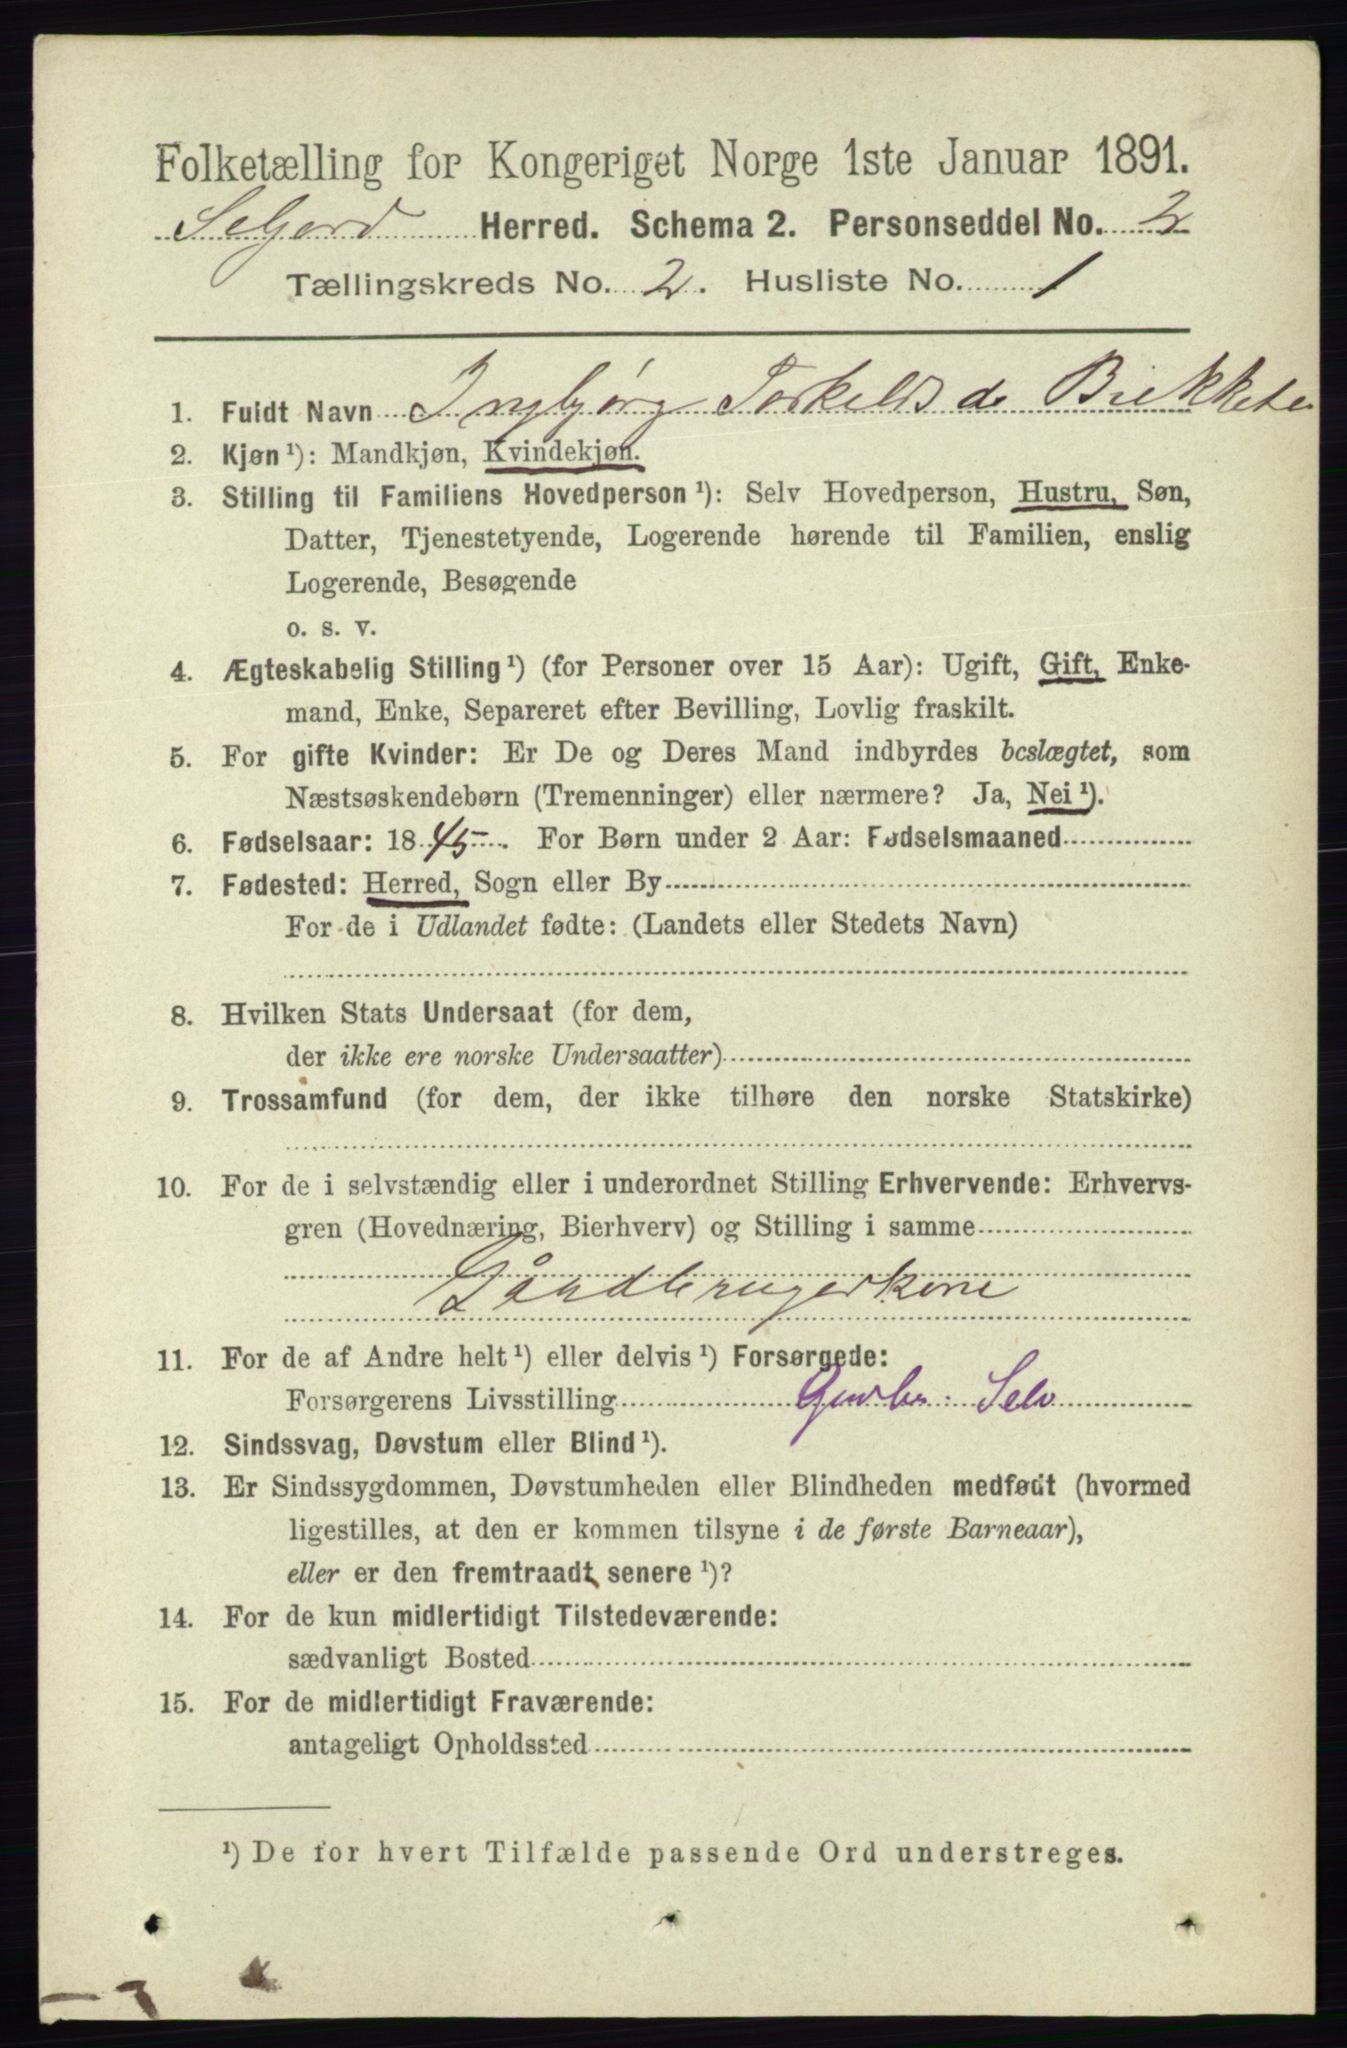 Folketælling for Kongeriget Norge 1ste Januar 1891.
Seljord Herred. Schema 2. Personseddel No. 2
Tællingskreds No. 2. Husliste No. 1
1. Fuldt Navn Ingbjørg Torkelsd.
2. Kjøn¹): Mandkjøn, Kvindekjøn.
3. Stilling til Familiens Hovedperson¹): Selv Hovedperson, Hustru, Søn,
Datter, Tjenestetyende, Logerende hørende til Familien, enslig
Logerende, Besøgende
o. s. v.
4. Ægteskabelig Stilling¹) (for Personer over 15 Aar): Ugift, Gift, Enke-
mand, Enke, Separeret efter Bevilling, Lovlig fraskilt.
5. For gifte Kvinder: Er De og Deres Mand indbyrdes beslægtet, som
Næstsøskendebørn (Tremenninger) eller nærmere? Ja, Nei¹).
6. Fødselsaar: 1845. For Børn under 2 Aar: Fødselsmaaned
7. Fødested: Herred, Sogn eller By
For de i Udlandet fødte: (Landets eller Stedets Navn)
8. Hvilken Stats Undersaat (for dem,
der ikke ere norske Undersaatter)
9. Trossamfund (for dem, der ikke tilhøre den norske Statskirke)
10. For de i selvstændig eller i underordnet Stilling Erhvervende: Erhvervs-
gren (Hovednæring, Bierhverv) og Stilling i samme
Gårdbrugerkone
11. For de af Andre helt¹) eller delvis¹) Forsørgede:
Forsørgerens Livsstilling Gaardbr: Selv
12. Sindssvag, Døvstum eller Blind¹).
13. Er Sindssygdommen, Døvstumheden eller Blindheden medfødt (hvormed
ligestilles, at den er kommen tilsyne i de første Barneaar),
eller er den fremtraadt senere¹)?
14. For de kun midlertidigt Tilstedeværende:
sædvanligt Bosted
15. For de midlertidigt Fraværende:
antageligt Opholdssted
¹) De for hvert Tilfælde passende Ord understreges.